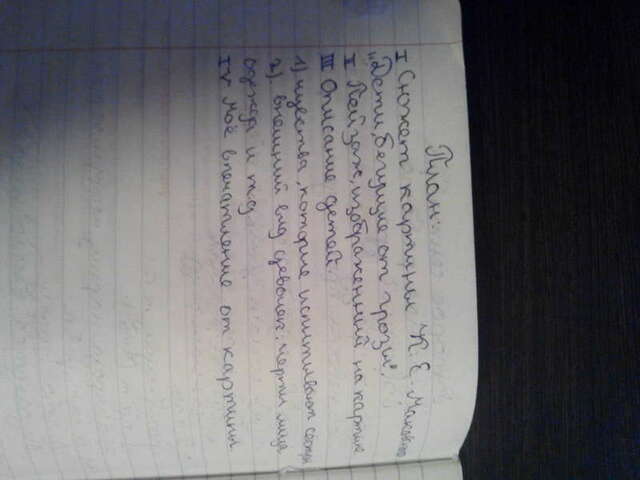 План:
I Сюжет картины К. Е. Маковского
„Дети, бегущие от грозы".
II Пейзаж, изображенный на картине
III Описание детей.
1) чувства, которые испытывают сестры
2) внешний вид девочек: черты лица
одежда и т.д
IV Моё впечатление от картины